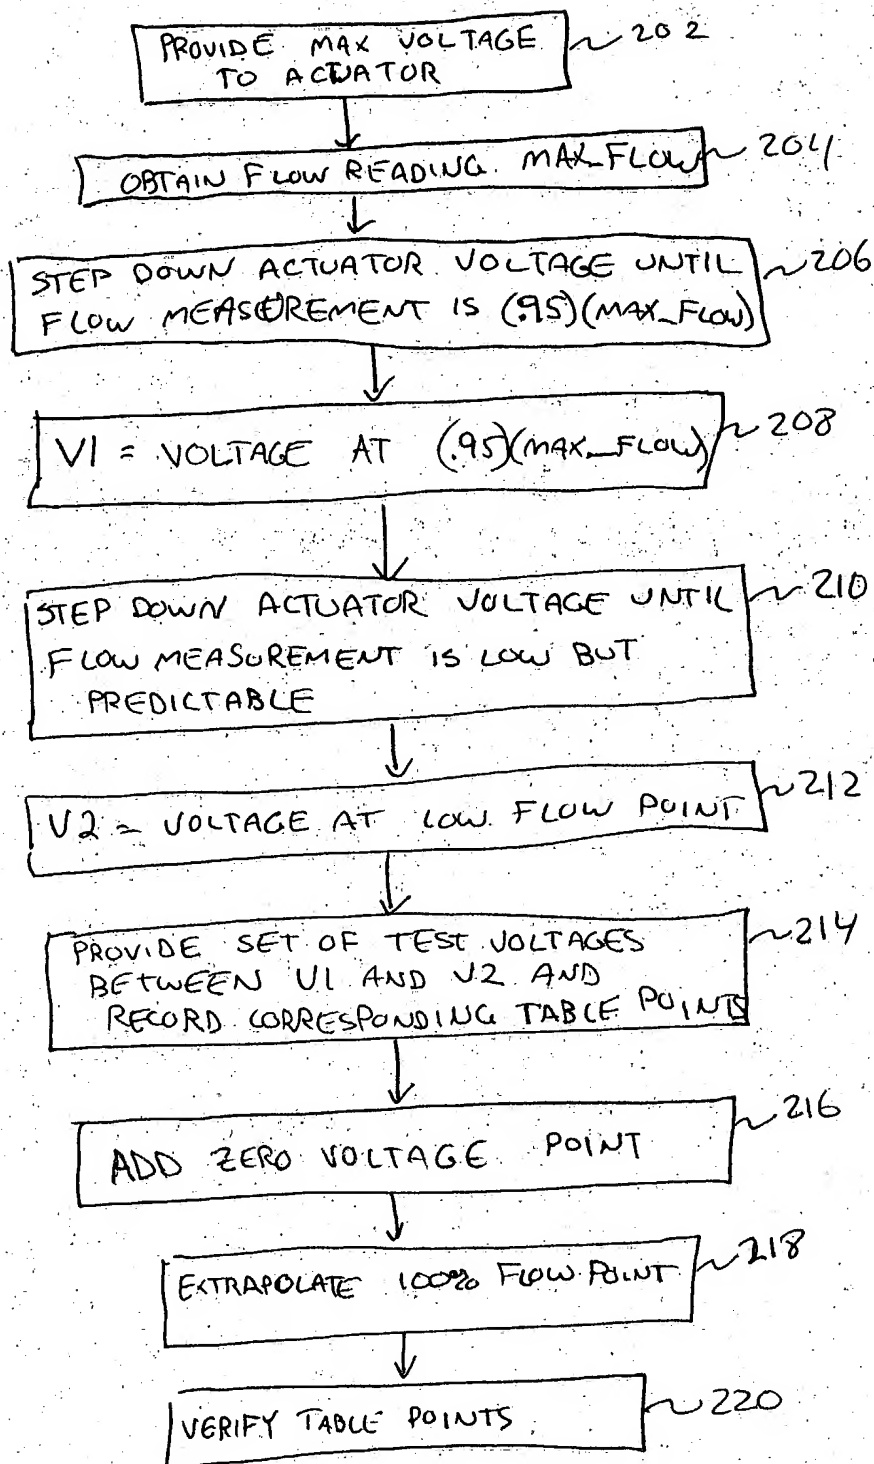 PROVIDE MAX VOLTAGE 202
TO ACTUATOR
OBTAIN FLOW READING. MAX_FLOW 204
STEP DOWN ACTUATOR VOLTAGE UNTIL 206
FLOW MEASUREMENT IS (.95)(MAX_FLOW)
V1 = VOLTAGE AT (.95)(MAX_FLOW) 208
STEP DOWN ACTUATOR VOLTAGE UNTIL 210
FLOW MEASUREMENT IS LOW BUT
PREDICTABLE
V2 = VOLTAGE AT LOW FLOW POINT 212
PROVIDE SET OF TEST VOLTAGES 214
BETWEEN V1 AND V2 AND
RECORD CORRESPONDING TABLE POINTS
ADD ZERO VOLTAGE POINT 216
EXTRAPOLATE 100% FLOW POINT 218
VERIFY TABLE POINTS 220